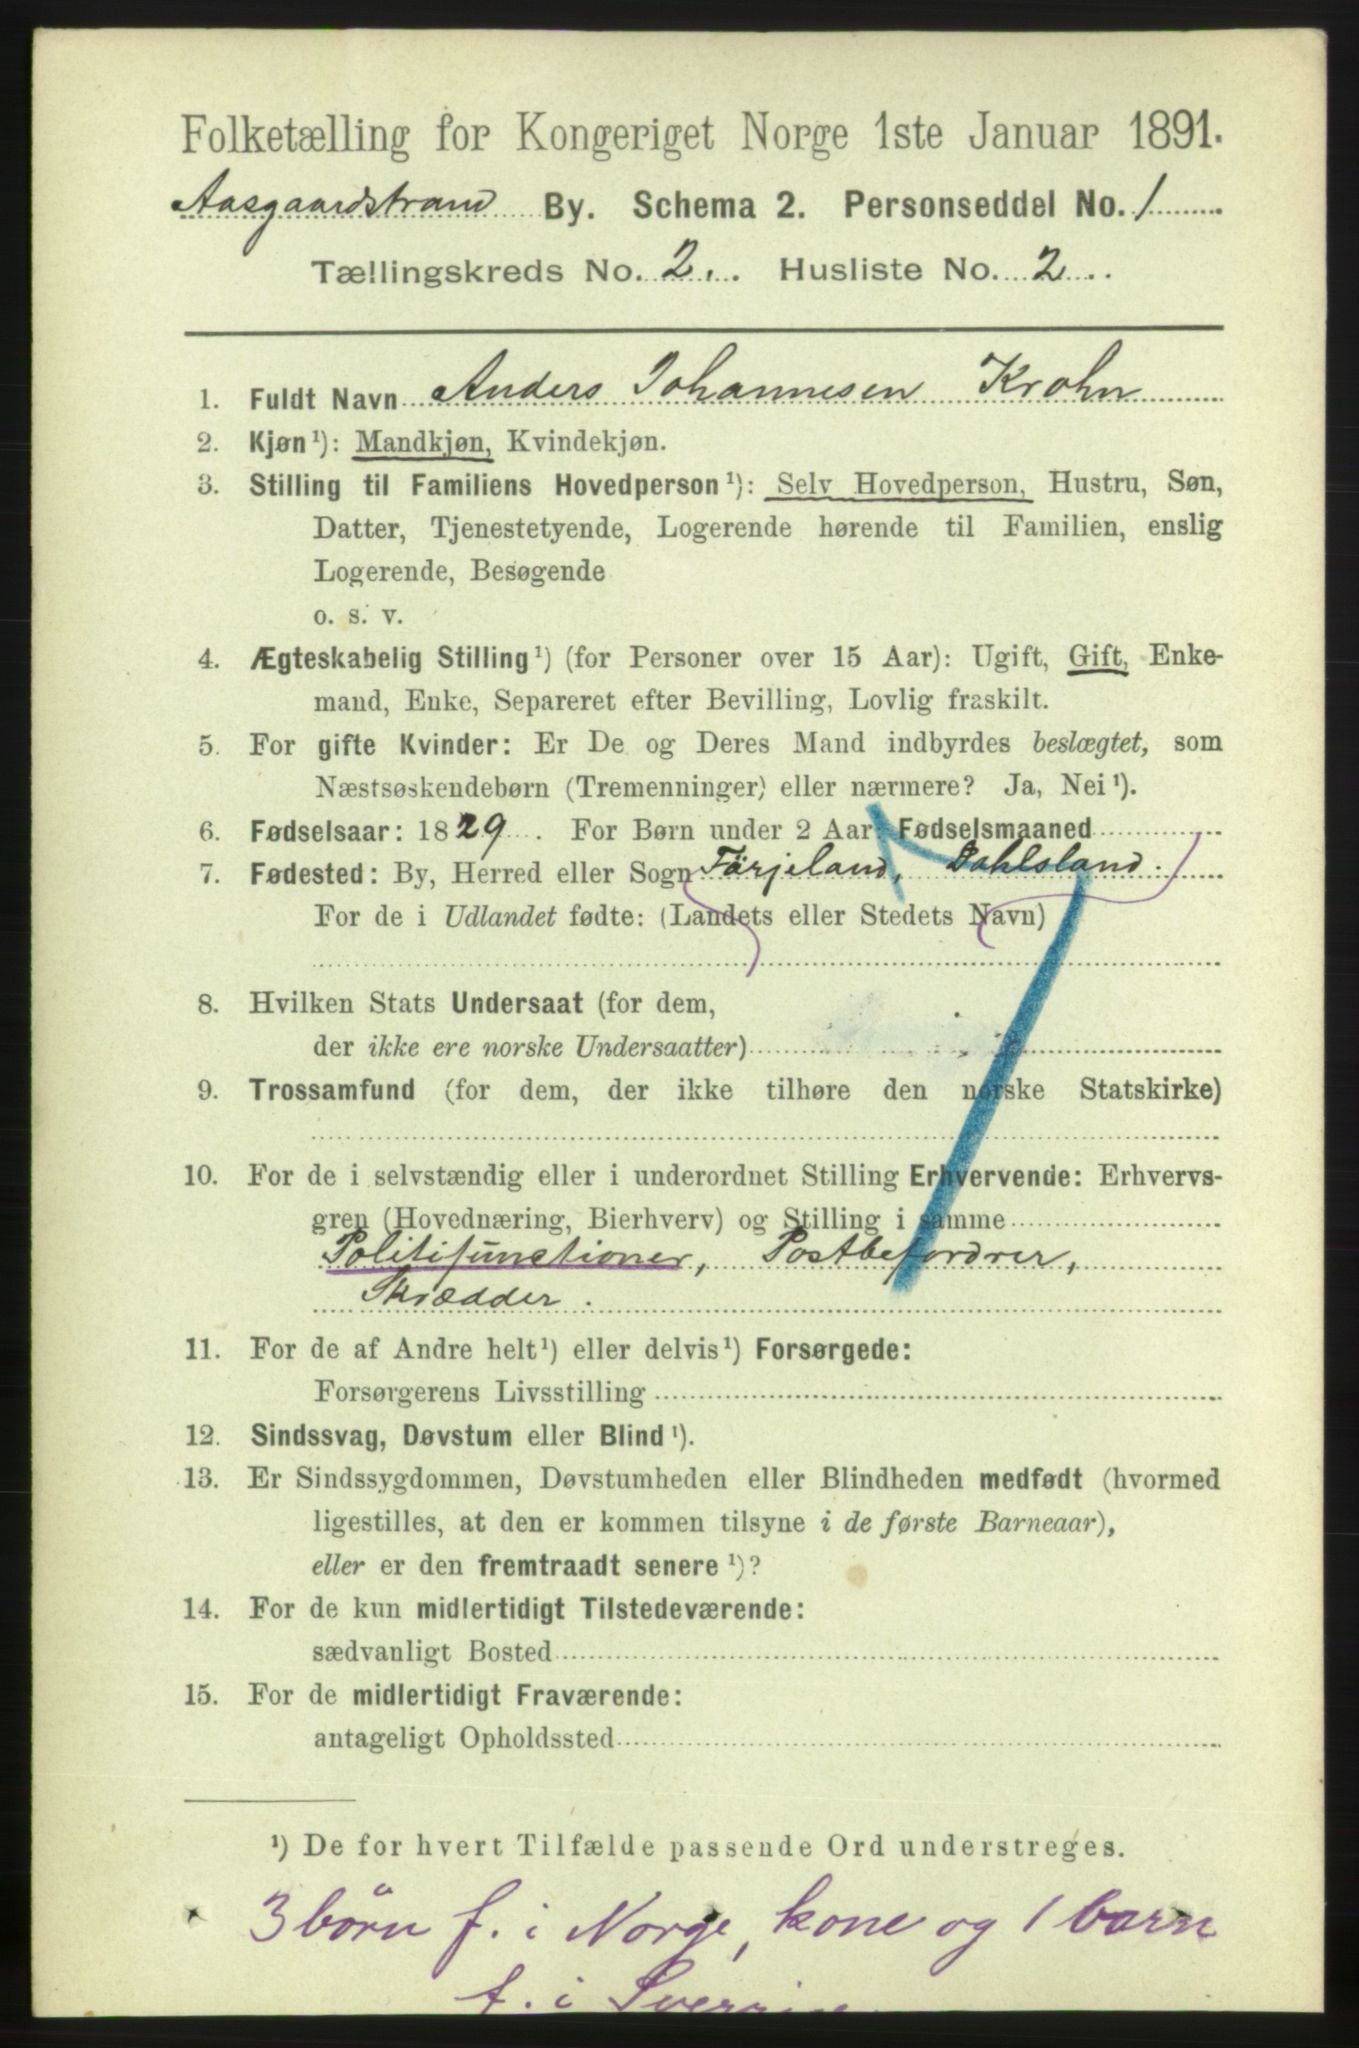 Folketælling for Kongeriget Norge 1ste Januar 1891.
Aasgaardstrand By. Schema 2. Personseddel No. 1
Tællingskreds No. 2. Husliste No. 2
1. Fuldt Navn Anders Johannesen Krohn
2. Kjøn¹): Mandkjøn, Kvindekjøn.
3. Stilling til Familiens Hovedperson¹): Selv Hovedperson, Hustru, Søn,
Datter, Tjenestetyende, Logerende hørende til Familien, enslig
Logerende, Besøgende
o. s. v.
4. Ægteskabelig Stilling¹) (for Personer over 15 Aar): Ugift, Gift, Enke-
mand, Enke, Separeret efter Bevilling, Lovlig fraskilt.
5. For gifte Kvinder: Er De og Deres Mand indbyrdes beslægtet, som
Næstsøskendebørn (Tremenninger) eller nærmere? Ja, Nei¹).
6. Fødselsaar: 1829. For Børn under 2 Aar: Fødselsmaaned
7. Fødested: By, Herred eller Sogn Färjeland, Dahlsland.
For de i Udlandet fødte: (Landets eller Stedets Navn)
8. Hvilken Stats Undersaat (for dem,
der ikke ere norske Undersaatter)
9. Trossamfund (for dem, der ikke tilhøre den norske Statskirke)
10. For de i selvstændig eller i underordnet Stilling Erhvervende: Erhvervs-
gren (Hovednæring, Bierhverv) og Stilling i samme
Politifunctioner, Postbefordrer,
Skrædder.
11. For de af Andre helt¹) eller delvis¹) Forsørgede:
Forsørgerens Livsstilling
12. Sindssvag, Døvstum eller Blind¹).
13. Er Sindssygdommen, Døvstumheden eller Blindheden medfødt (hvormed
ligestilles, at den er kommen tilsyne i de første Barneaar),
eller er den fremtraadt senere¹)?
14. For de kun midlertidigt Tilstedeværende:
sædvanligt Bosted
15. For de midlertidigt Fraværende:
antageligt Opholdssted
¹) De for hvert Tilfælde passende Ord understreges.
3 börn f. i Norge, kone og 1 barn
f. i Sverrige